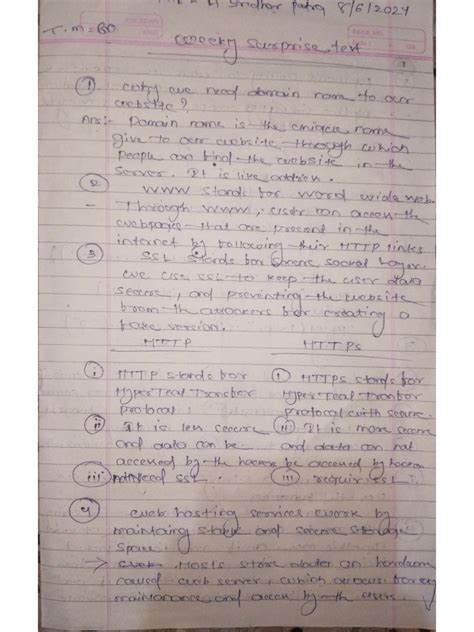 Sridhar Patra 8/6/2024
T.m=60
weekly surprise test
① why we need domain name to our
website?
Ans:- Domain name is the unique name
give to our website through which
people can find the website in the
server. It is like address.
② www stands for word wide web.
- Thorough www, user can access the
webpages that are present in the
internet by following their HTTP links
③ SSL stands for socket layer.
we use SSL to keep the user data
secure, and preventing the website
from the attackers for creating a
fake version.
HTTP HTTPs
ⓘ HTTP stands for ⓘ HTTPs stands for
HyperText Transfer HyperText Transfer
protocol protocol with secure.
ⓘⓘ It is less secure ⓘⓘ It is more secure
and data can be and data can not
accessed by the be accessed by
ⓘⓘⓘ need SSL ⓘⓘⓘ require SSL
④ web hosting services work by
maintaing stable and secure storage
space.
→ Hosts store data on hardware
called web server, which allows for easy
maintenance and access by the users.